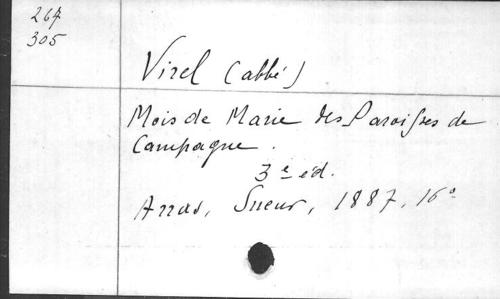 267
305
Virel (abbé)
Mois de Marie des Paroisses de
Campagne.
3e éd.
Arras, Sueur, 1887, 16°